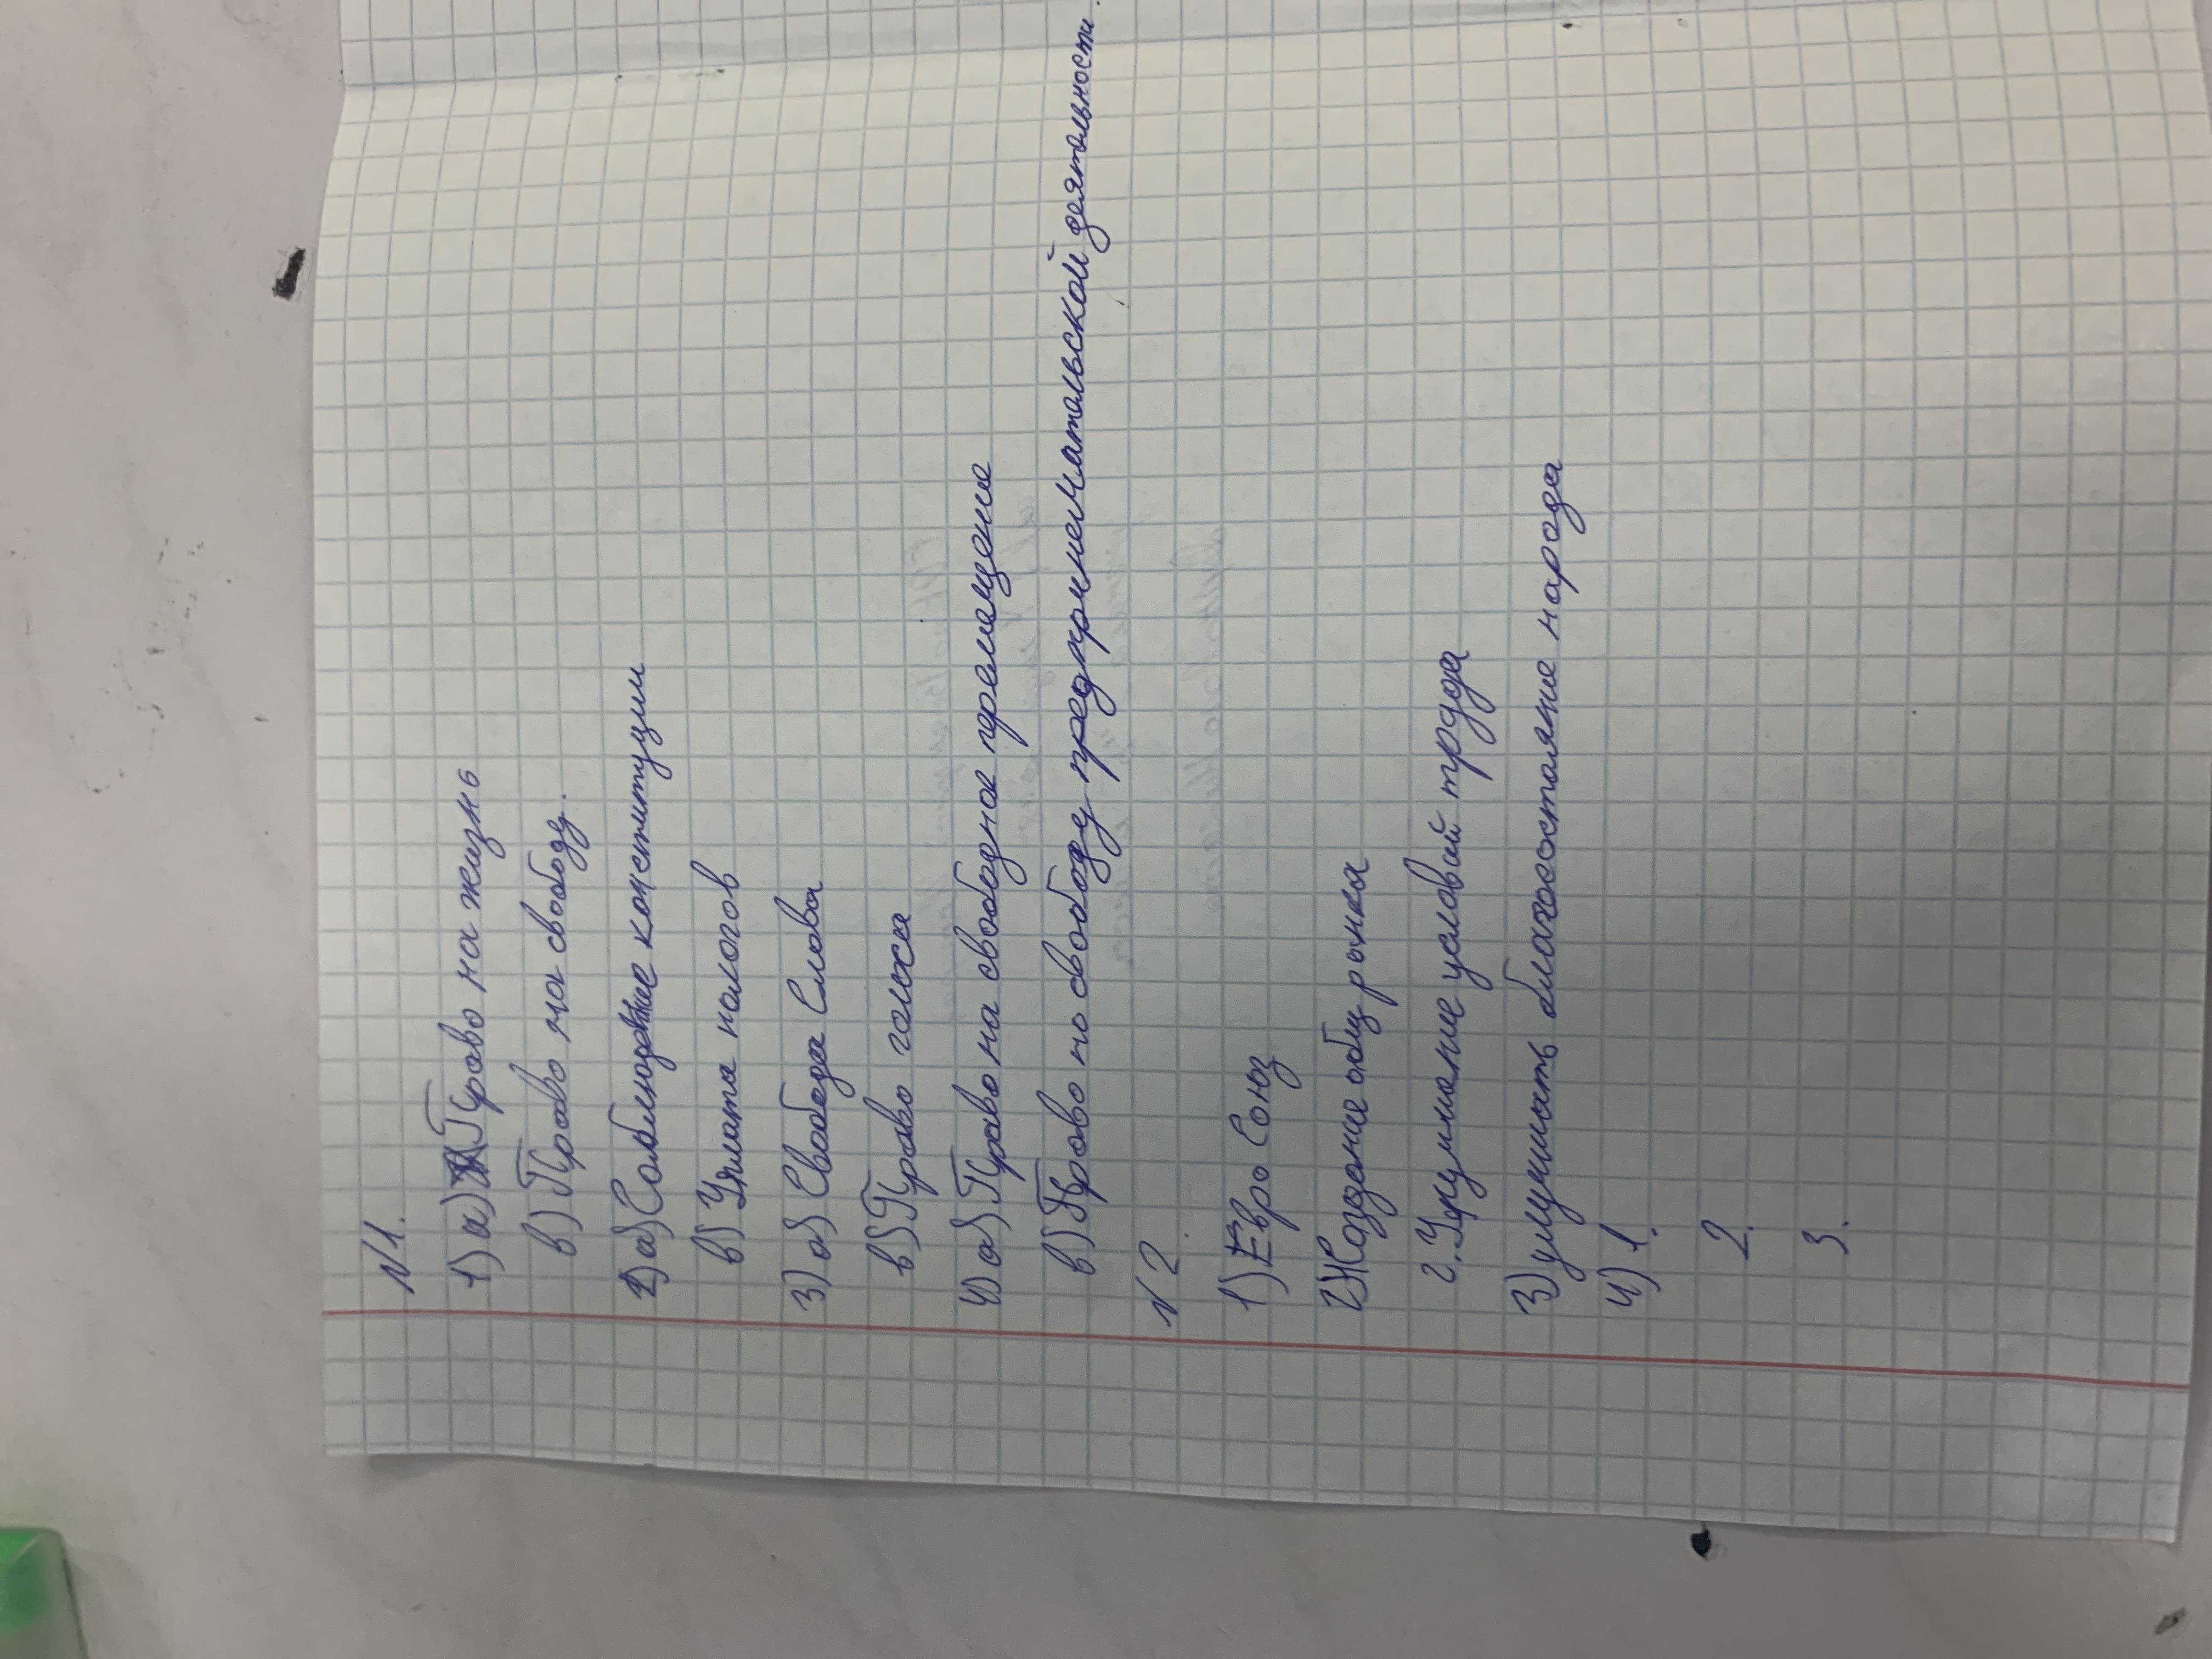 №1.
1) а) Право на жизнь
в) Право на свободу.
2) а) Соблюдение конституции
в) Уплата налогов
3) а) Свобода Слова
в) Право голоса
4) а) Право на свободное премещение
в) Право на свободу предпринематальской деятельности.
№2.
1) Евро Союз
2) общ рынка
2. условий труда
3) улучшить благосостаяние народа
4) 1.
2.
3.